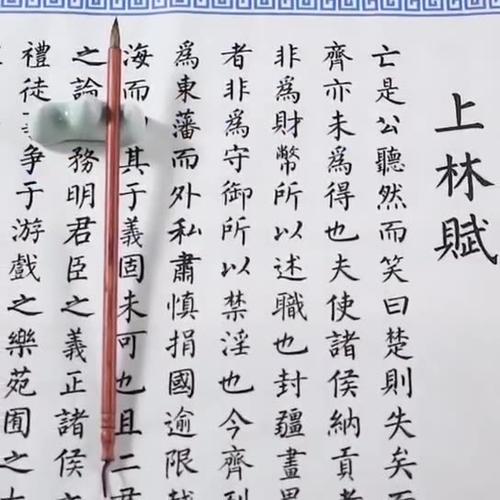 上林賦
亡是公聽然而笑曰楚則失矣而
齊亦未爲得也夫使諸侯納貢
非爲財幣所以述職也封疆畫
者非爲守御所以禁淫也今齊列
爲東藩而外私肅慎捐國逾限越
海而其于義固未可也且二君
之論務明君臣之義正諸侯
禮徒爭于游戲之樂苑囿之